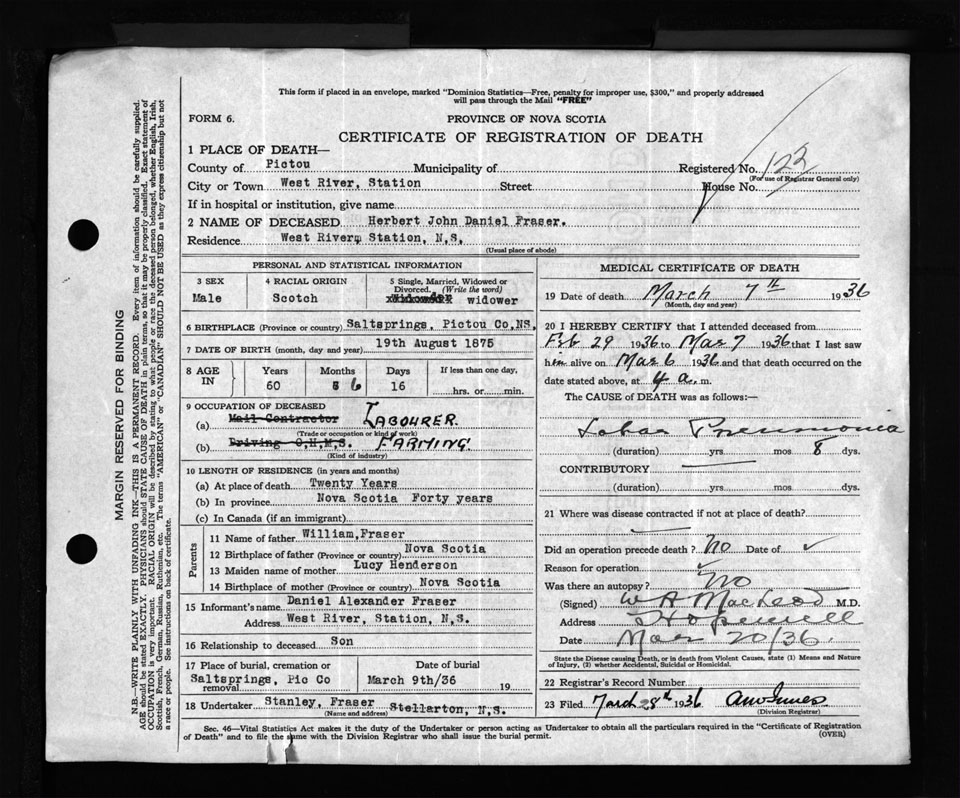 This form if placed in an envelope, marked "Dominion Statistics—Free, penalty for improper use, $300," and properly addressed
will pass through the Mail "FREE"
FORM 6.
PROVINCE OF NOVA SCOTIA
CERTIFICATE OF REGISTRATION OF DEATH
1 PLACE OF DEATH—
County of Pictou Municipality of Registered No. 123
(For use of Registrar General only)
City or Town West River, Station Street House No.
If in hospital or institution, give name
2 NAME OF DECEASED Herbert John Daniel Fraser.
Residence West River, Station, N,S,
(Usual place of abode)
PERSONAL AND STATISTICAL INFORMATION
3 SEX
Male
4 RACIAL ORIGIN
Scotch
5 Single, Married, Widowed or
Divorced. (Write the word)
widower
6 BIRTHPLACE (Province or country) Saltsprings, Pictou Co,NS,
7 DATE OF BIRTH (month, day and year) 19th August 1875
8 AGE IN
Years Months Days If less than one day,
60 6 16 hrs. or min.
9 OCCUPATION OF DECEASED
(a) Mail Contractor LABOURER.
(Trade or occupation or kind of work)
(b) Driving O,H,M,S. FARMING.
(Kind of industry)
10 LENGTH OF RESIDENCE (in years and months)
(a) At place of death Twenty Years
(b) In province Nova Scotia Forty years
(c) In Canada (if an immigrant)
Parents
11 Name of father William,Fraser
12 Birthplace of father (Province or country) Nova Scotia
13 Maiden name of mother Lucy Henderson
14 Birthplace of mother (Province or country) Nova Scotia
15 Informant's name Daniel Alexander Fraser
Address West River, Station, N,S.
16 Relationship to deceased Son
17 Place of burial, cremation or Date of burial
Saltsprings, Pic Co March 9th/36
removal 19
18 Undertaker Stanley, Fraser Stellarton, N,S.
(Name and address)
MEDICAL CERTIFICATE OF DEATH
19 Date of death March 7th 1936
(Month, day and year)
20 I HEREBY CERTIFY that I attended deceased from
Feb 29 1936 to Mar 7 1936 that I last saw
him alive on Mar 6 1936 and that death occurred on the
date stated above, at 4 a. m.
The CAUSE of DEATH was as follows:—
Lobar Pneumonia
(duration) yrs. mos 8 dys.
CONTRIBUTORY
(duration) yrs. mos. dys.
21 Where was disease contracted if not at place of death?
Did an operation precede death? No Date of
Reason for operation
Was there an autopsy? No
(Signed) W A MacLeod M.D.
Address Hopewell
Date Mar 20/36.
State the Disease causing Death, or in death from Violent Causes, state (1) Means and Nature
of Injury, (2) whether Accidental, Suicidal or Homicidal.
22 Registrar's Record Number
23 Filed March 28th 1936
(Division Registrar)
Sec. 46—Vital Statistics Act makes it the duty of the Undertaker or person acting as Undertaker to obtain all the particulars required in the "Certificate of Registration
of Death" and to file the same with the Division Registrar who shall issue the burial permit. (OVER)
MARGIN RESERVED FOR BINDING
N.B.—WRITE PLAINLY WITH UNFADING INK—THIS IS A PERMANENT RECORD. Every item of information should be carefully supplied.
AGE should be stated EXACTLY. PHYSICIANS should STATE CAUSE OF DEATH in plain terms, so that it may be properly classified. Exact statement of
OCCUPATION is very important. RACIAL ORIGIN will be described by stating to what people or race the deceased person belonged, whether English, Irish,
Scottish, French, German, Russian, Ruthenian, etc. The terms "AMERICAN" or "CANADIAN" SHOULD NOT BE USED as they express citizenship but not
a race or people. See instructions on back of certificate.